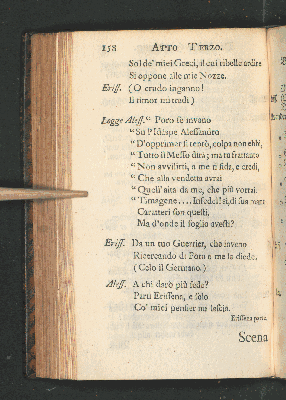 158 ATTO TERZO.
Sol de' miei Greci, il cui ribelle ardire
Si oppone alle mie Nozze.
Eriss. (O crudo inganno!
Il timor mi tradì)
Legge Aless. " Poro se invano
" Su l' Idaspe Alessandro
" D'opprimer si tentò, colpa non ebbi,
" Tutto il Messo dirà; ma tu frattanto
" Non avvilirti, a me ti fida, e credi,
" Che alla vendetta avrai
" Quell' aita da me, che più vorrai.
" Timagene.... Infedel! sì, di sua mano
Caratteri son questi,
Ma d'onde il foglio avesti?
Eriss. Da un tuo Guerrier, che invano
Ricercando di Poro a me la diede.
(Celo il Germano.)
Aless. A chi darò più fede?
Parti Erissena, e solo
Co' miei pensier me lascia.
Erissena parte.
Scena